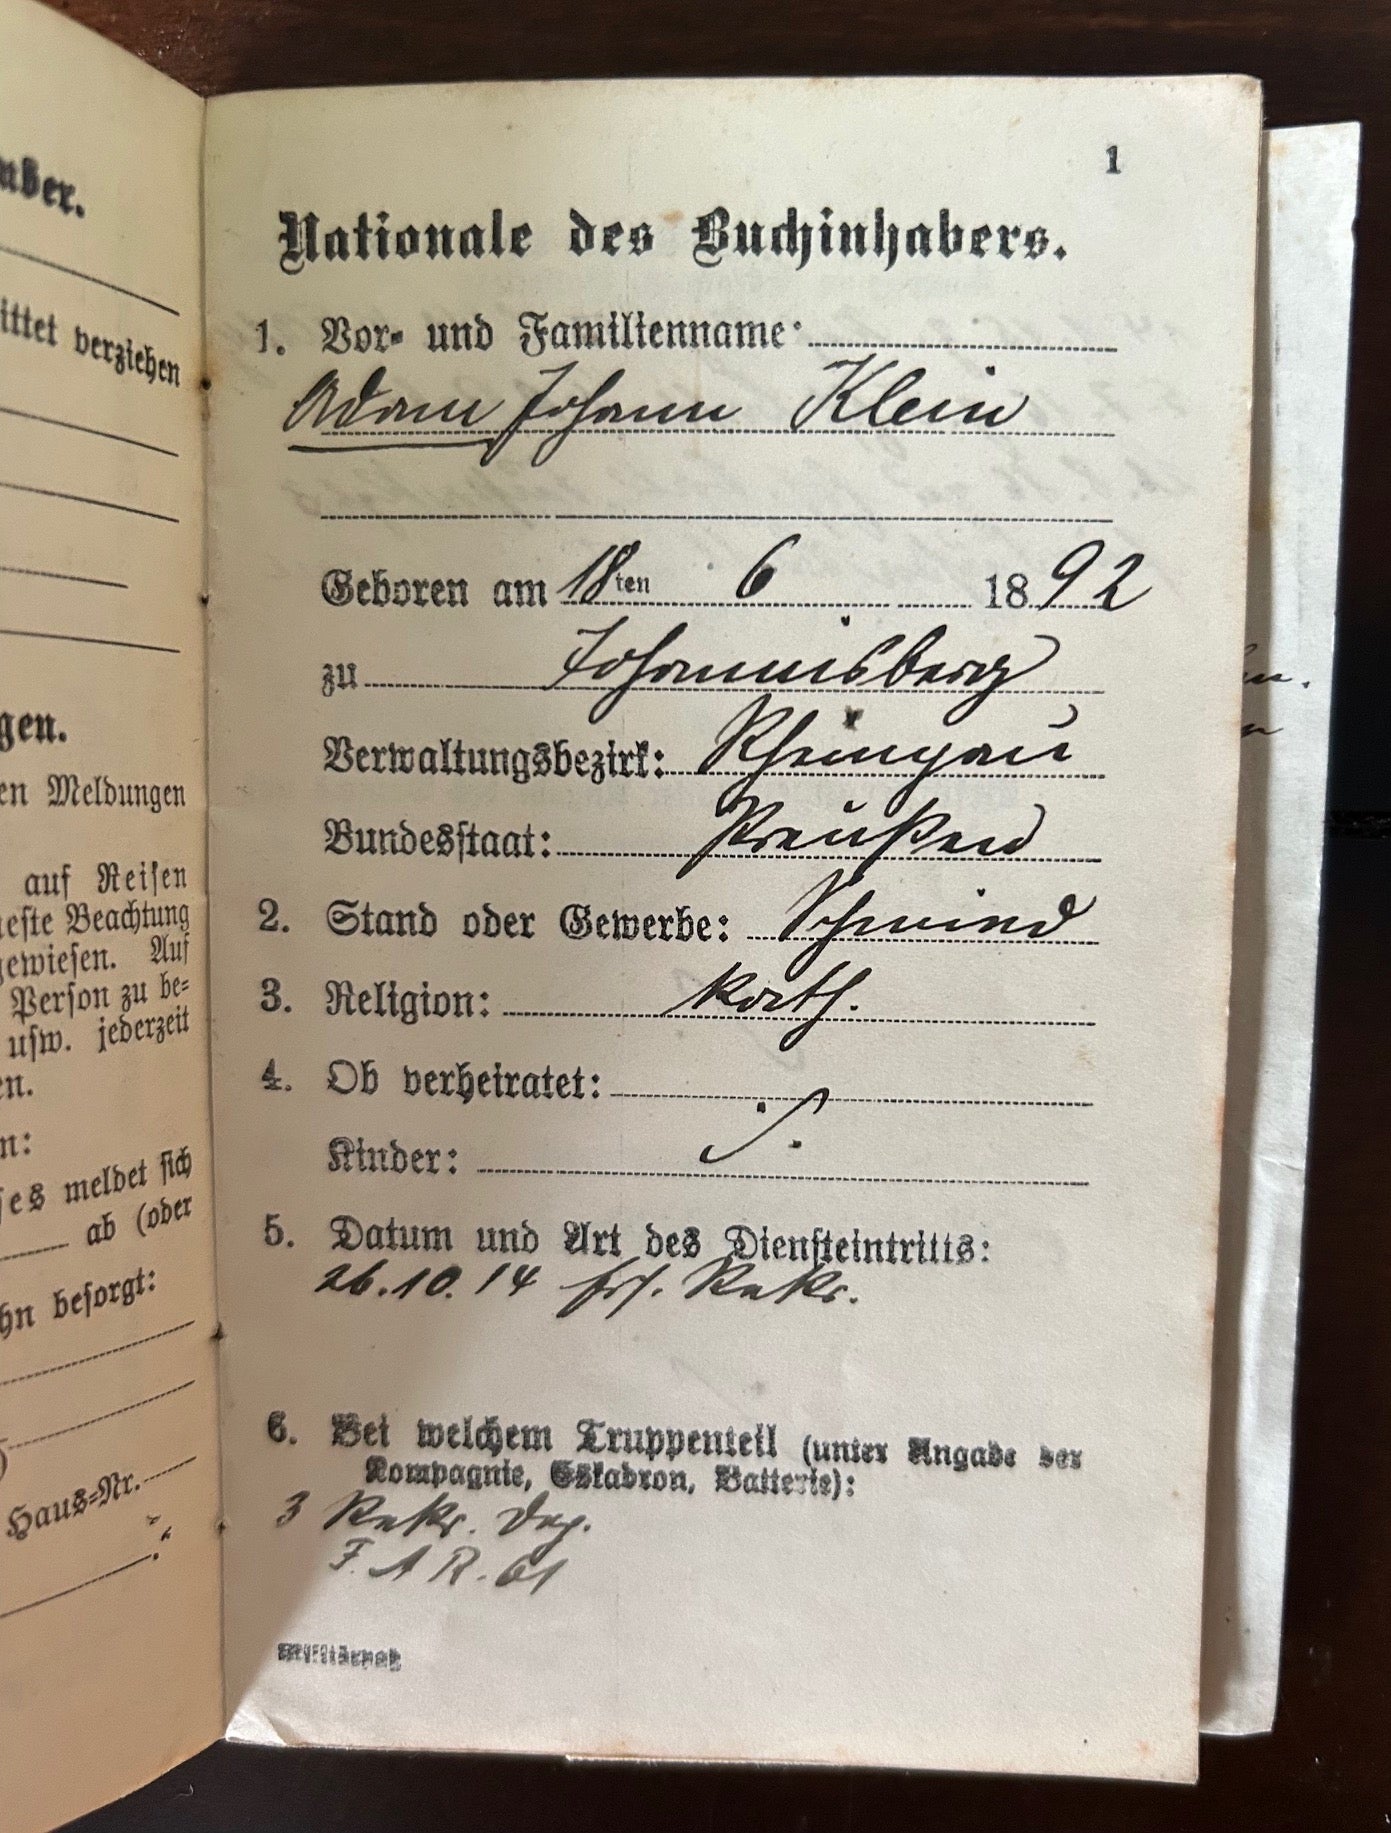 uber.
ittet verziehen
gen.
en Meldungen
auf Reisen
neste Beachtung
gewiesen. Auf
Person zu be-
usw. jederzeit
en.
n:
ses meldet sich
ab (oder
hn besorgt:
Haus-Nr.
1
Nationale des Buchinhabers.
1. Vor- und Familienname:
Adam Johann Klein
Geboren am 18ten 6 1892
zu Johannisberg
Verwaltungsbezirk: Rheingau
Bundesstaat: Preußen
2. Stand oder Gewerbe: Schmied
3. Religion: kath.
4. Ob verheiratet:
Kinder:
5. Datum und Art des Diensteintritts:
26.10.14 Ers. Rekr.
6. Bei welchem Truppenteil (unter Angabe der
Kompagnie, Eskadron, Batterie):
3 Rekr. Dep.
F. A R. 61
Militärpaß